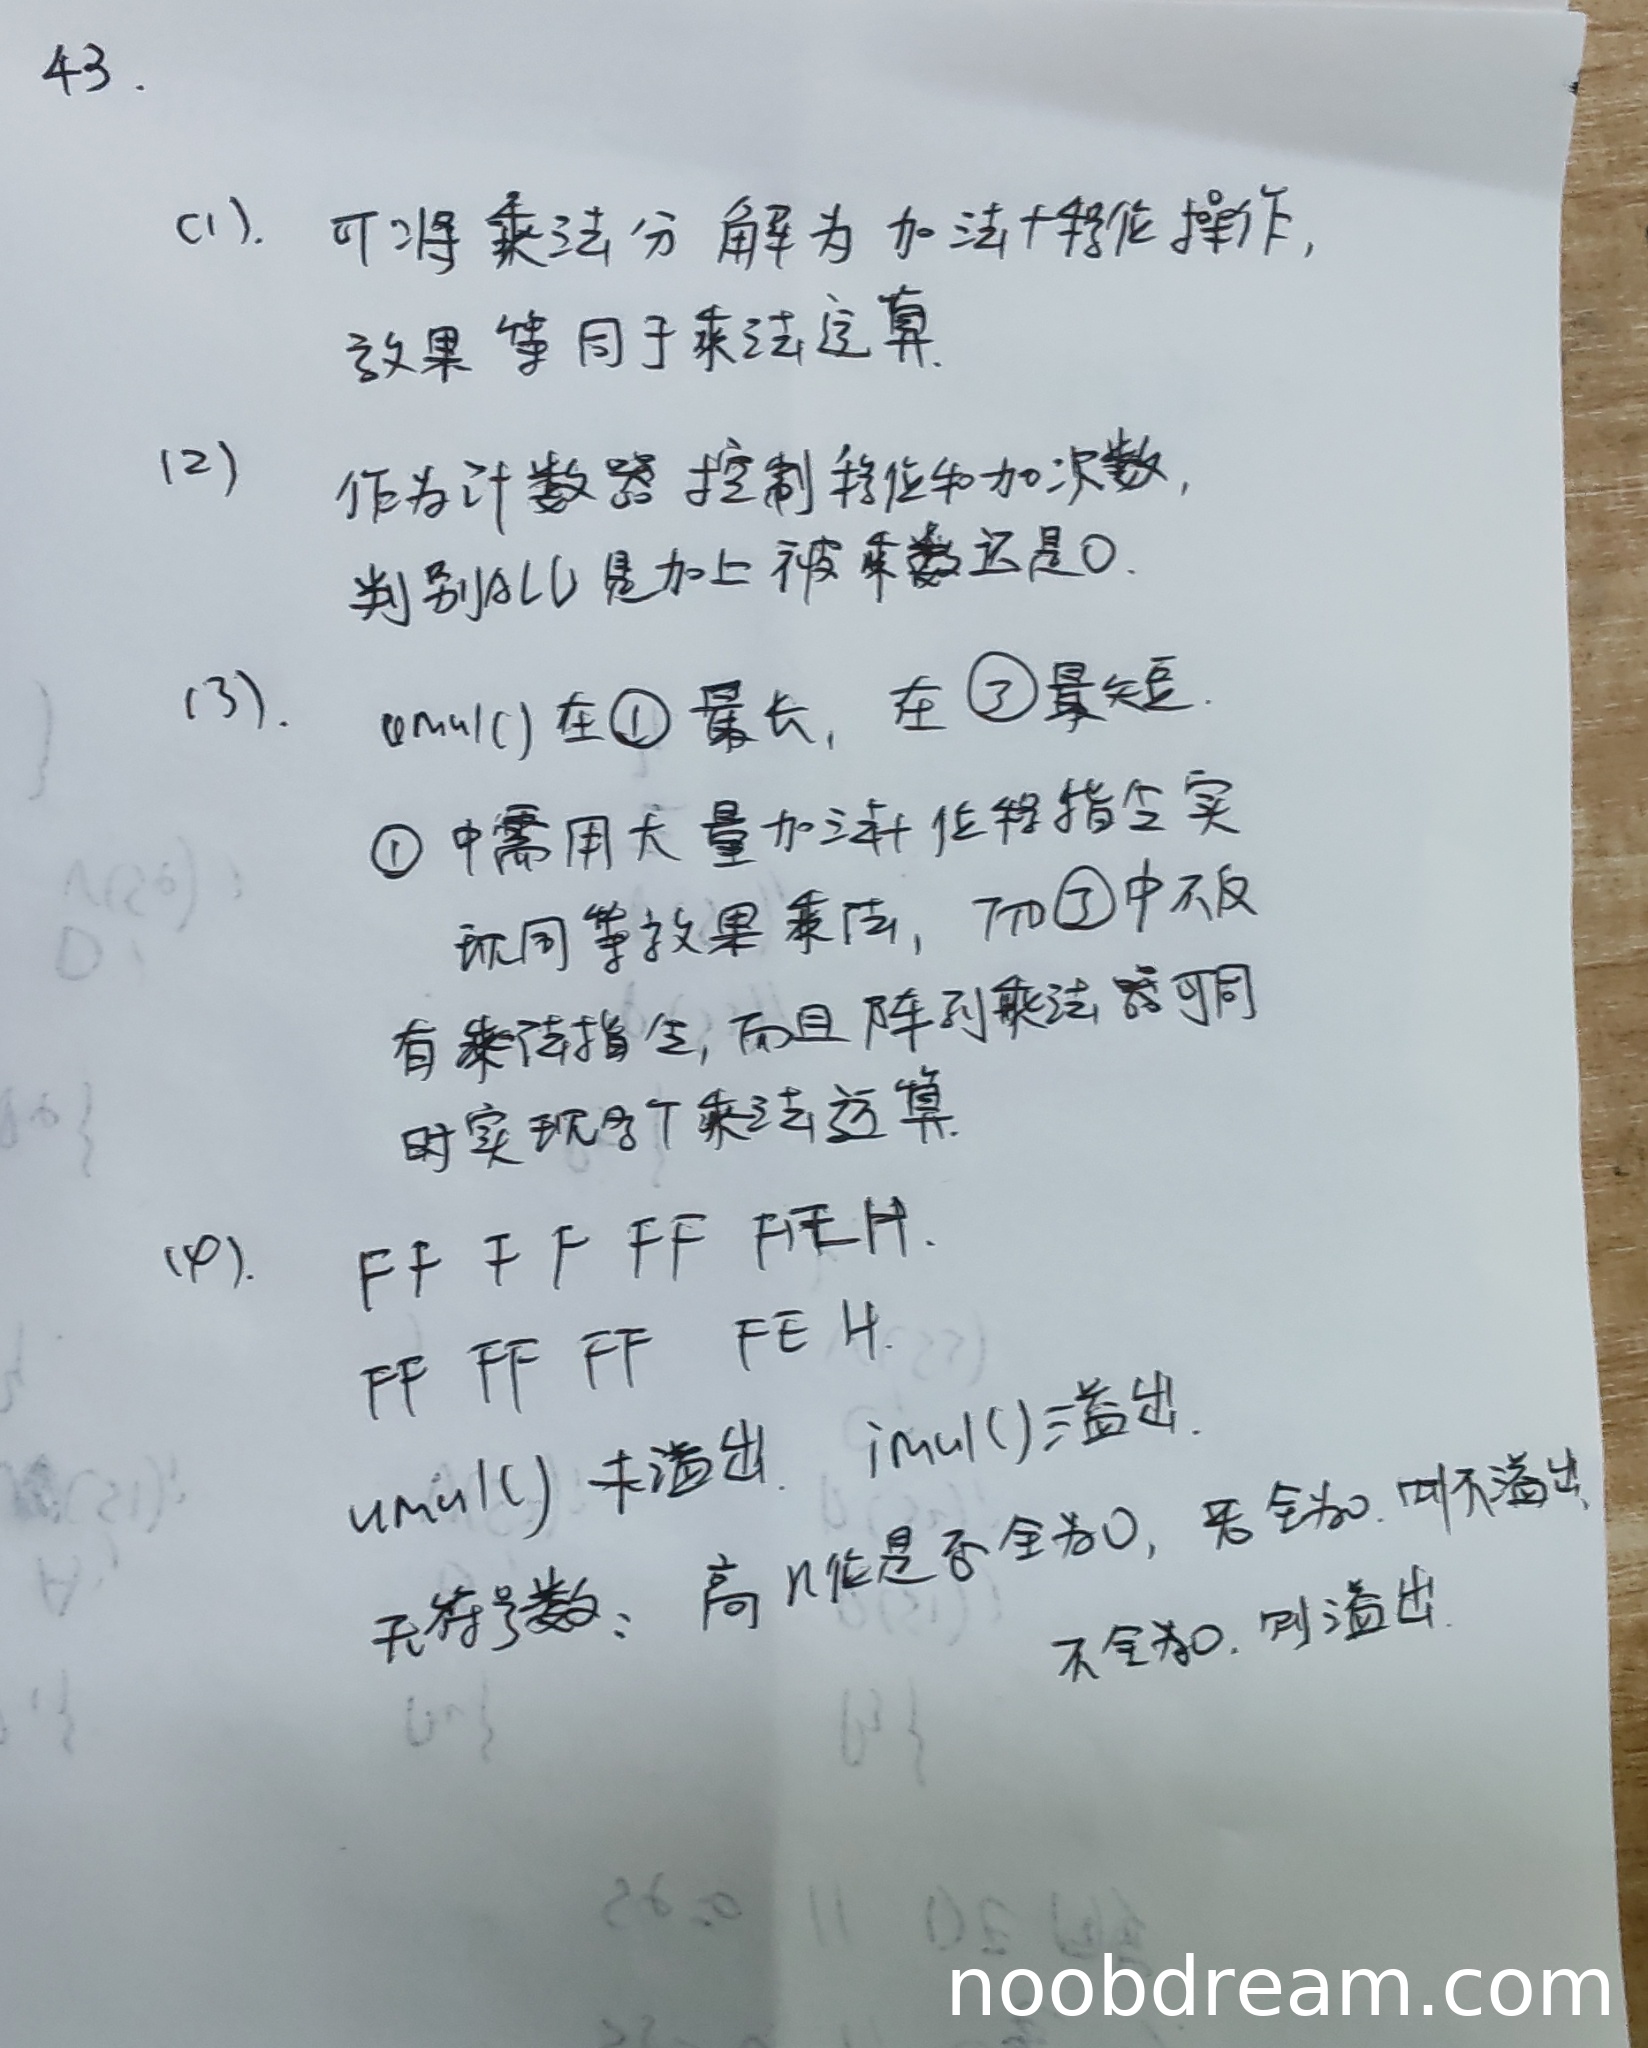 43.
(1). 可将乘法分解为加法+移位操作,
效果等同于乘法运算.
(2) 作为计数器控制移位和加次数,
判别ALU是加上被乘数还是0.
(3). umul()在①最长, 在③最短.
①中需用大量加法+位移指令实
现同等效果乘法, 而③中不仅
有乘法指令, 而且阵列乘法器可同
时实现多个乘法运算.
(4). FF FF FF FEH.
FF FF FF FE H.
umul() 未溢出. imul()溢出.
无符号数: 高n位是否全为0, 若全为0. 则不溢出,
不全为0. 则溢出.
noobdream.com